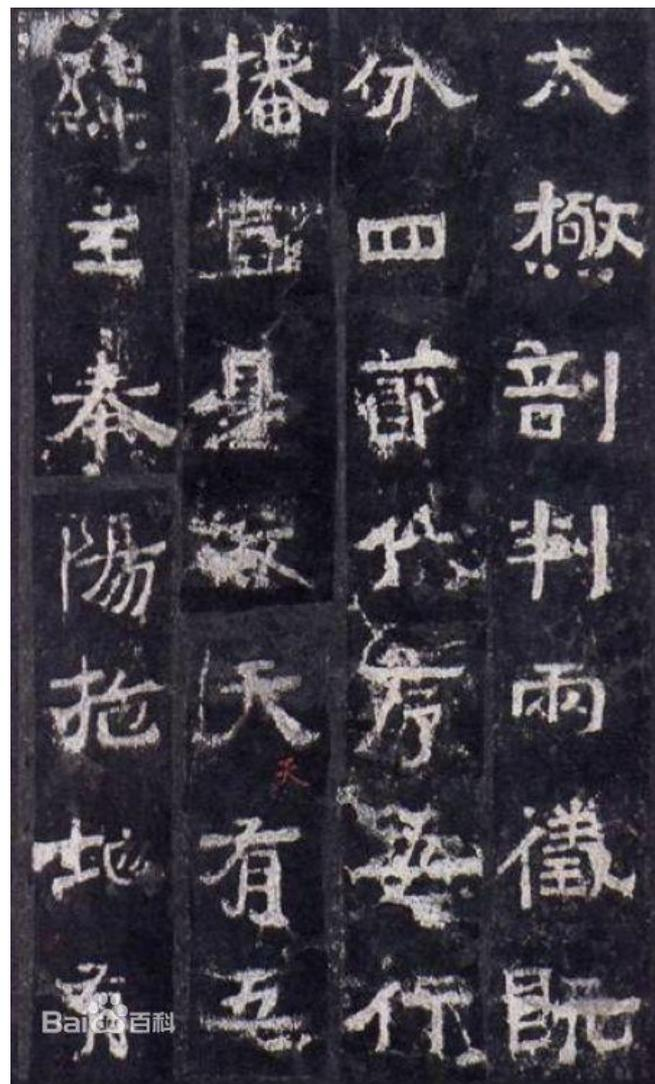 太極剖判兩儀既
分四節代序五行
播宣是故天有五
緯主奉陽施地有
天
Baidu百科